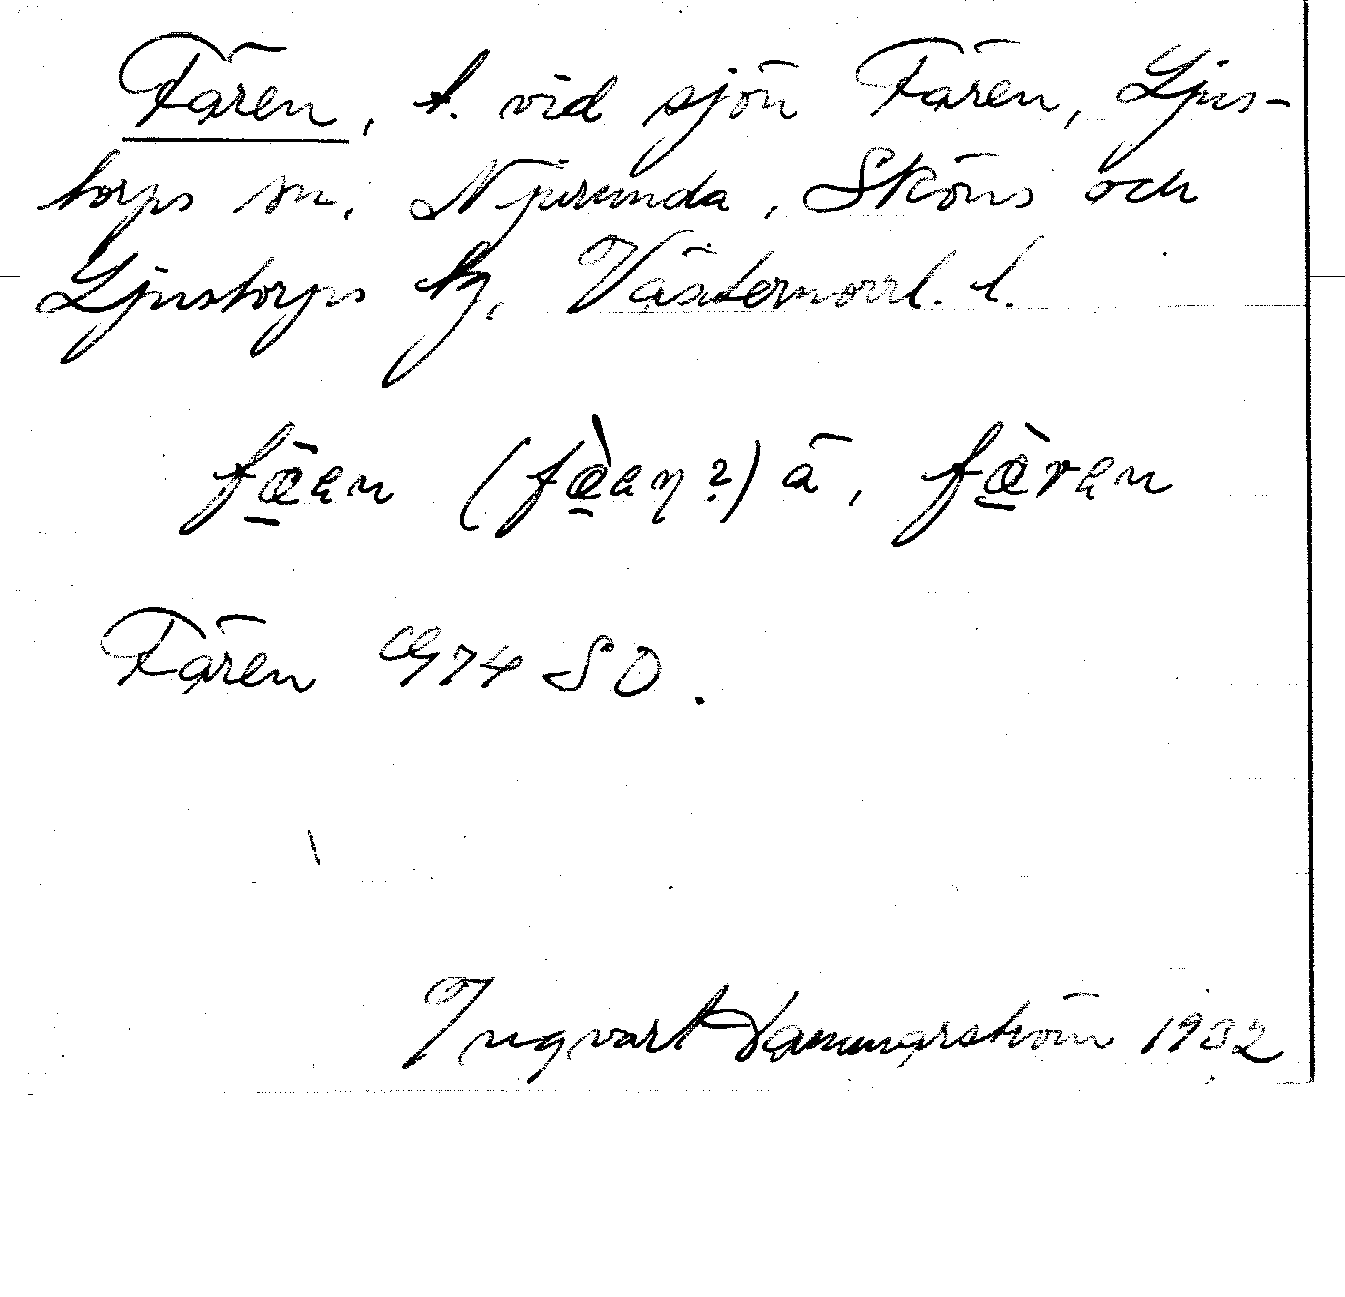 Fären, t. vid sjön Fären, Ljus-
torps sn. Njurunda, Sköns och
Ljustorps tg, Västernorrl. l.
fæ̱an (fæ̱̀aŋ?) ä, fæ̱̀ran
Fären G74 SO.
Ingvart Hammarström 1932